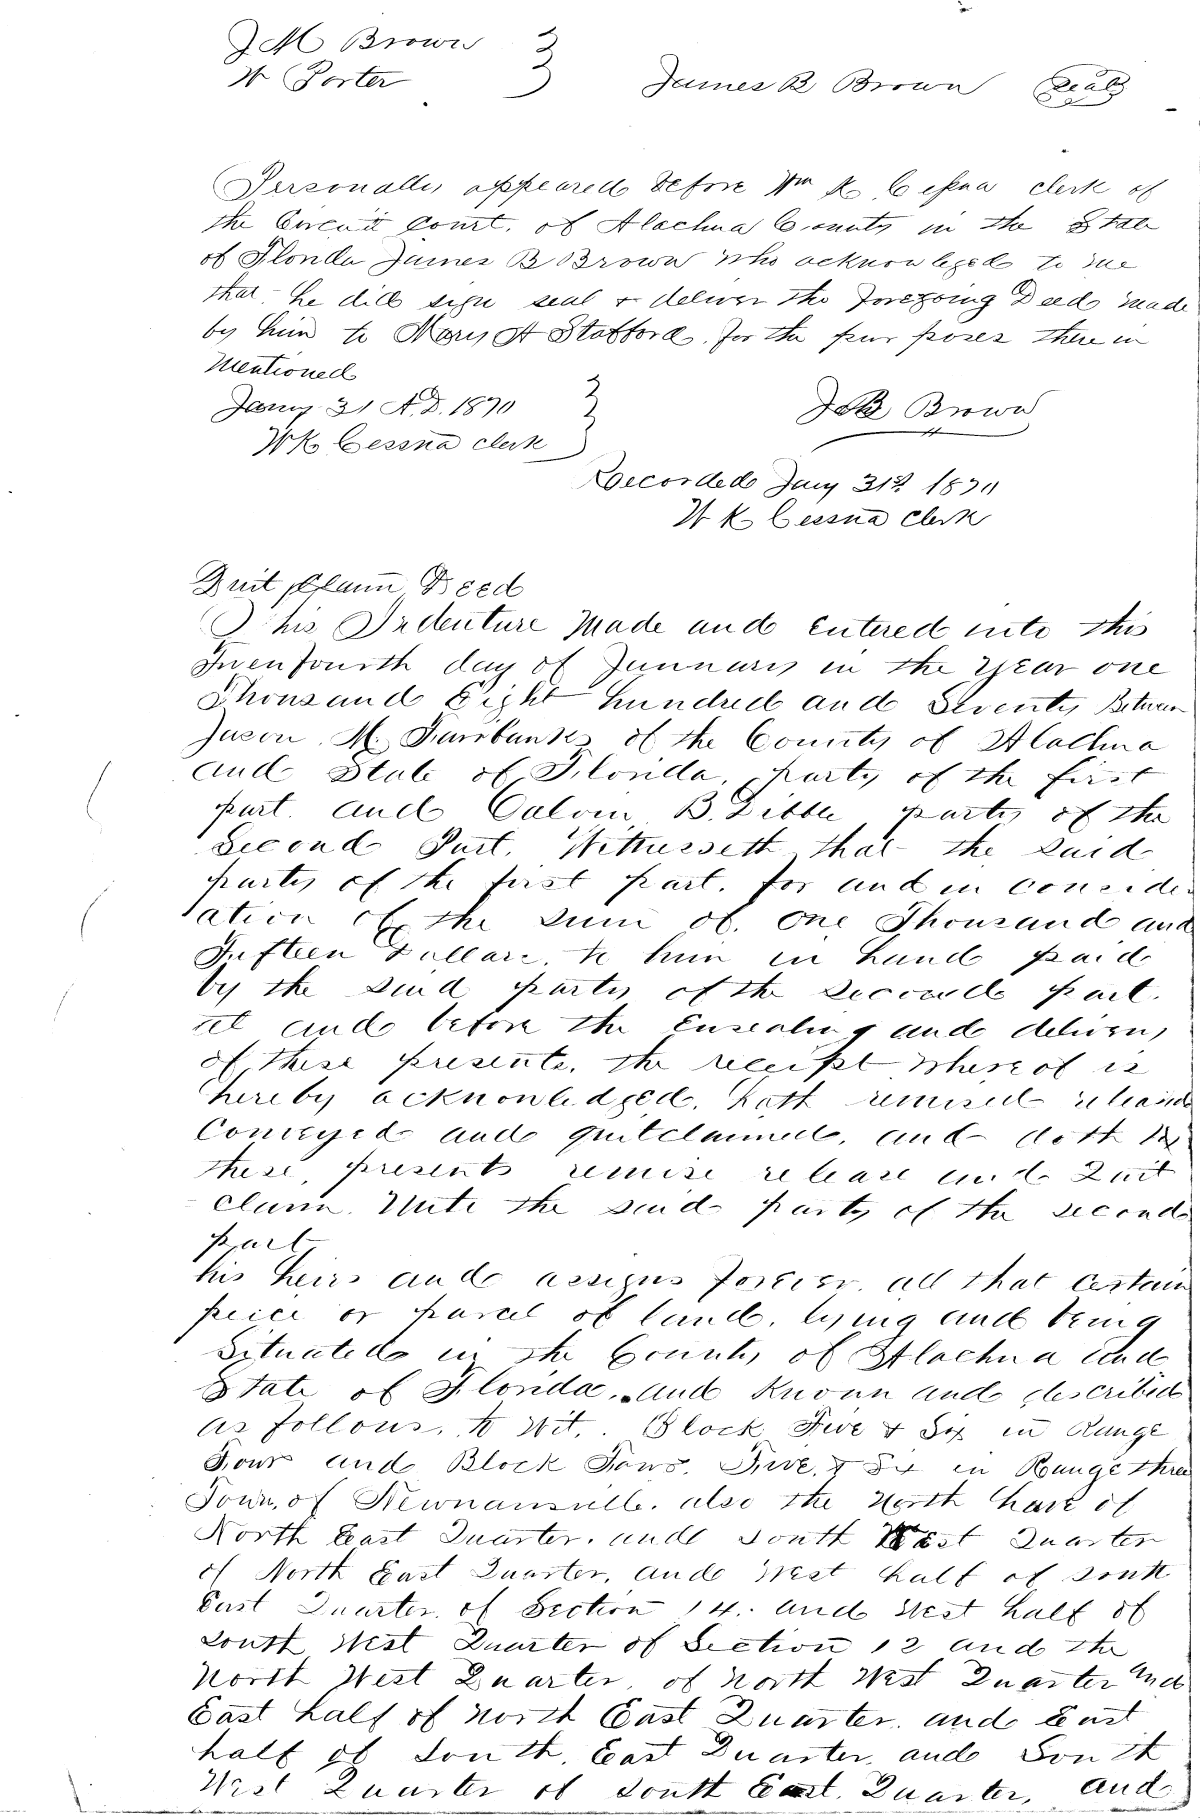 J M Brown
W Porter
James B Brown Seal
Personally appeared before Wm K Cessna clerk of
the Circuit Court. of Alachua County in the State
of Florida James B Brown who acknowleged to me
that he did sign seal + deliver the foregoing Deed made
by him to Mary A Stafford. for the purposes there in
mentioned
Jany 31 A.D. 1870
J B Brown
W K Cessna clerk
Recorded Jany 31st 1870
W K Cessna Clerk
Quit Claim Deed
This Indenture made and entered into this
Twenfourth day of Junuary in the year one
Thousand Eight hundred and Seventy Between
Jason M. Fairbanks of the County of Alachua
and State of Florida, party of the first
part. and Calvin B. Dibble party of the
Second Part. Witnesseth that the said
party of the first part. for and in consider
ation of the sum of. One Thousand and
Fifteen Dollars. to him in hand paid
by the said party of the second part.
at and before the ensealing and delivery
of these presents. the receipt whereof is
hereby acknowledged. hath remised released
Conveyed and quitclaimed. and doth by
these, presents remise release and Quit
claim. Unto the said party of the second
part
his heirs and assigns forever. all that certain
peice or parcel of land. lying and being
Situated in the County of Alachua and
State of Florida. and known and described
as follows. to Wit. Block Five + Six in Range
Four and Block Four. Five. + Six in Range three
Town. of Newnansville. also the North half of
North East Quarter. and South West Quarter
of North East Quarter. and West half of South
East Quarter. of Section 14. and West half of
South West Quarter of Section 12 and the
North West Quarter. of North West Quarter and
East half of North East Quarter. and East
half of South. East Quarter. and South
West Quarter of South East. Quarter. and